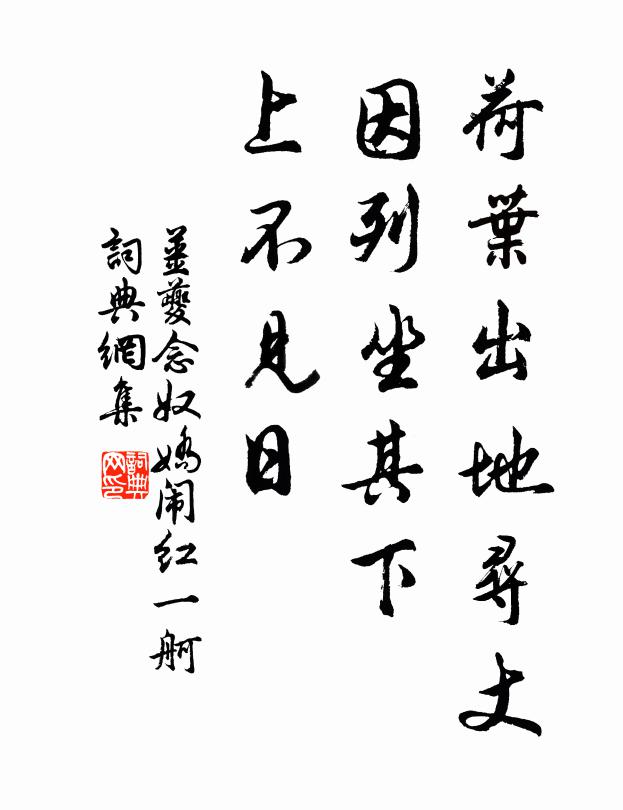 荷葉出地尋丈
因列坐其下
上不見日
薑夔念奴嬌闹红一舸
詞典網集
詞典网印